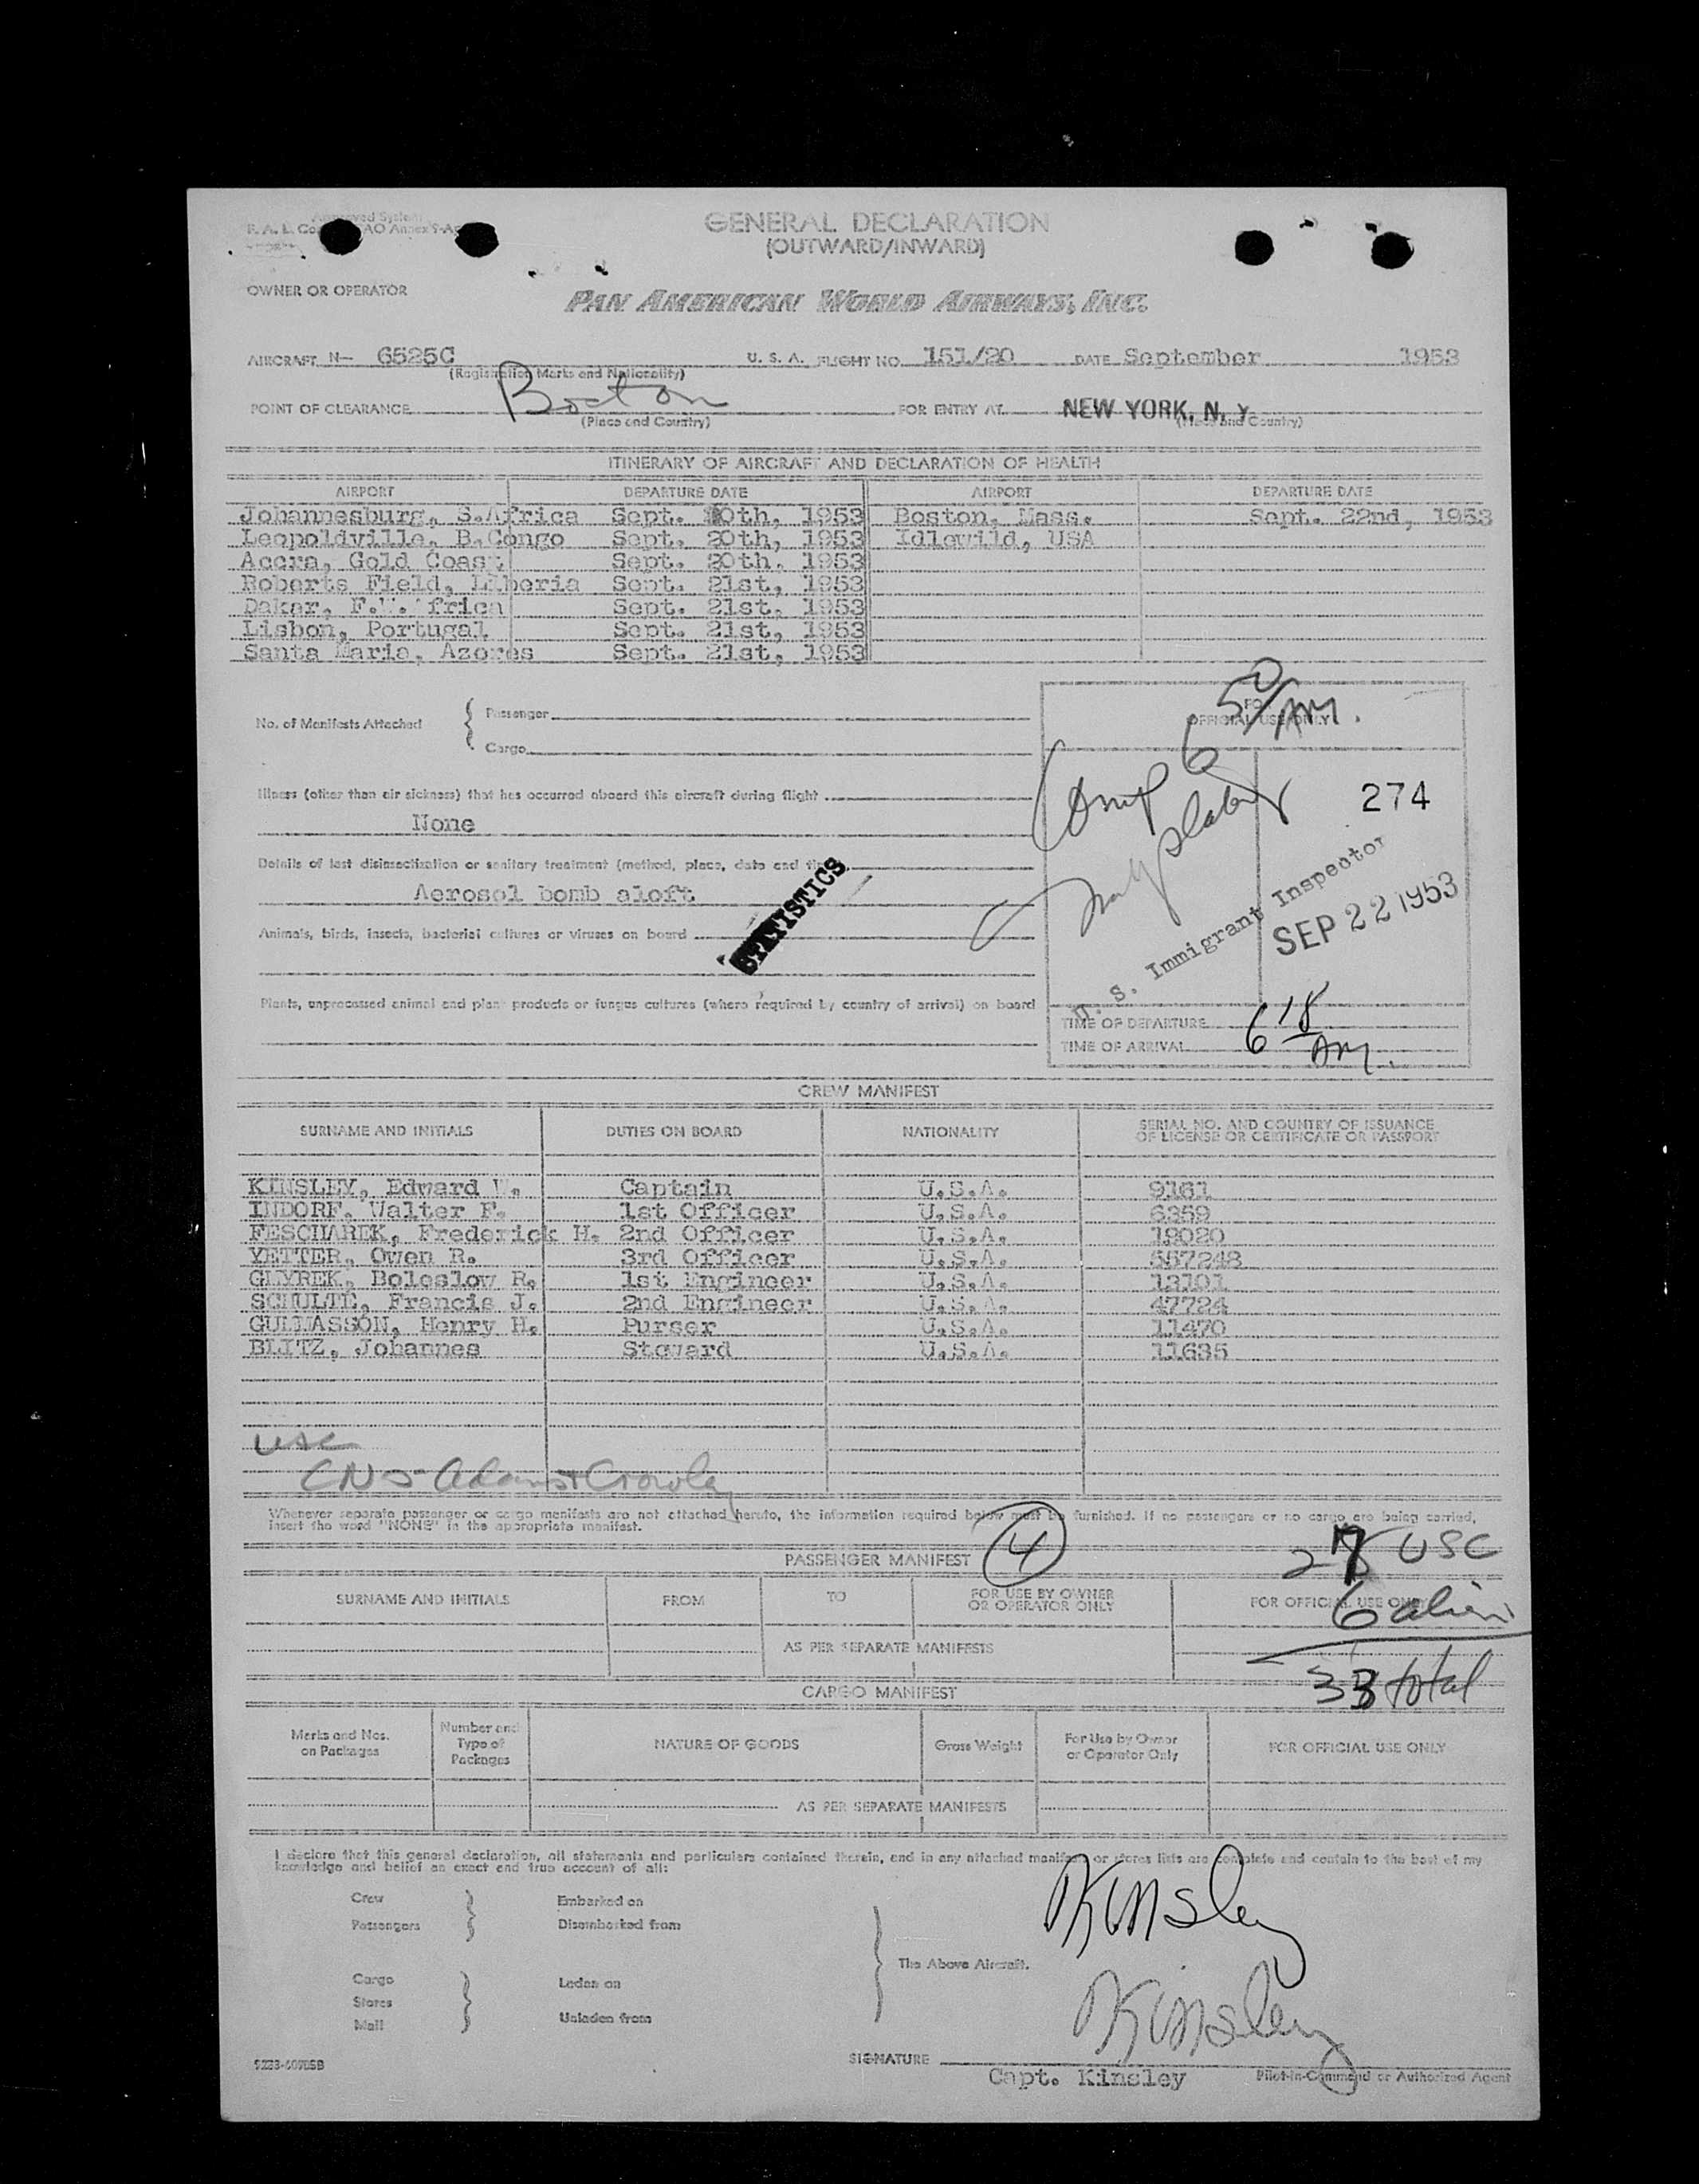 GENERAL DECLARATION
(OUTWARD/INWARD)
OWNER OR OPERATOR
PAN AMERICAN WORLD AIRWAYS, INC.
AIRCRAFT N- 6525C U. S. A. FLIGHT NO. 151/20 DATE September 1953
(Registration Marks and Nationality)
POINT OF CLEARANCE Boston FOR ENTRY AT NEW YORK, N. Y.
(Place and Country) (Place and Country)
ITINERARY OF AIRCRAFT AND DECLARATION OF HEALTH
AIRPORT DEPARTURE DATE AIRPORT DEPARTURE DATE
Johannesburg, S.Africa Sept. 20th, 1953 Boston, Mass. Sept. 22nd, 1953
Leopoldville, B.Congo Sept. 20th, 1953 Idlewild, USA
Accra, Gold Coast Sept. 20th, 1953
Roberts Field, Liberia Sept. 21st, 1953
Dakar, F.W.Africa Sept. 21st, 1953
Lisbon, Portugal Sept. 21st, 1953
Santa Maria, Azores Sept. 21st, 1953
No. of Manifests Attached { Passenger
Cargo
FOR
OFFICIAL USE ONLY
6 50/AM.
Comp
274
Illness (other than air sickness) that has occurred aboard this aircraft during flight
None
Details of last disinsectization or sanitary treatment (method, place, date and time)
Aerosol bomb aloft
STATISTICS
Animals, birds, insects, bacterial cultures or viruses on board
U. S. Immigrant Inspector
SEP 22 1953
Plants, unprocessed animal and plant products or fungus cultures (where required by country of arrival) on board
TIME OF DEPARTURE
TIME OF ARRIVAL 6 18 AM.
CREW MANIFEST
SURNAME AND INITIALS DUTIES ON BOARD NATIONALITY SERIAL NO. AND COUNTRY OF ISSUANCE
OF LICENSE OR CERTIFICATE OR PASSPORT
KINSLEY, Edward W. Captain U.S.A. 9161
INDORF, Walter F. 1st Officer U.S.A. 6359
FESCHAREK, Frederick H. 2nd Officer U.S.A. 19020
YETTER, Owen R. 3rd Officer U.S.A. 557248
GLYREK, Boleslow R. 1st Engineer U.S.A. 13101
SCHULTE, Francis J. 2nd Engineer U.S.A. 47724
GULMASSON, Henry H. Purser U.S.A. 11470
BLITZ, Johannes Steward U.S.A. 11635
USC
Whenever separate passenger or cargo manifests are not attached hereto, the information required below must be furnished. If no passengers or no cargo are being carried,
insert the word "NONE" in the appropriate manifest.
PASSENGER MANIFEST 4 27 USC
SURNAME AND INITIALS FROM TO FOR USE BY OWNER
OR OPERATOR ONLY FOR OFFICIAL USE ONLY
6 alien
AS PER SEPARATE MANIFESTS
33 total
CARGO MANIFEST
Marks and Nos.
on Packages Number and
Type of
Packages NATURE OF GOODS Gross Weight For Use by Owner
or Operator Only FOR OFFICIAL USE ONLY
AS PER SEPARATE MANIFESTS
I declare that this general declaration, all statements and particulars contained therein, and in any attached manifests or stores lists are complete and contain to the best of my
knowledge and belief an exact and true account of all:
Crew Embarked on
Passengers Disembarked from
Kinsley
The Above Aircraft.
Cargo Laden on
Stores
Mail Unladen from
Kinsley
SIGNATURE
Capt. Kinsley Pilot-in-Command or Authorized Agent